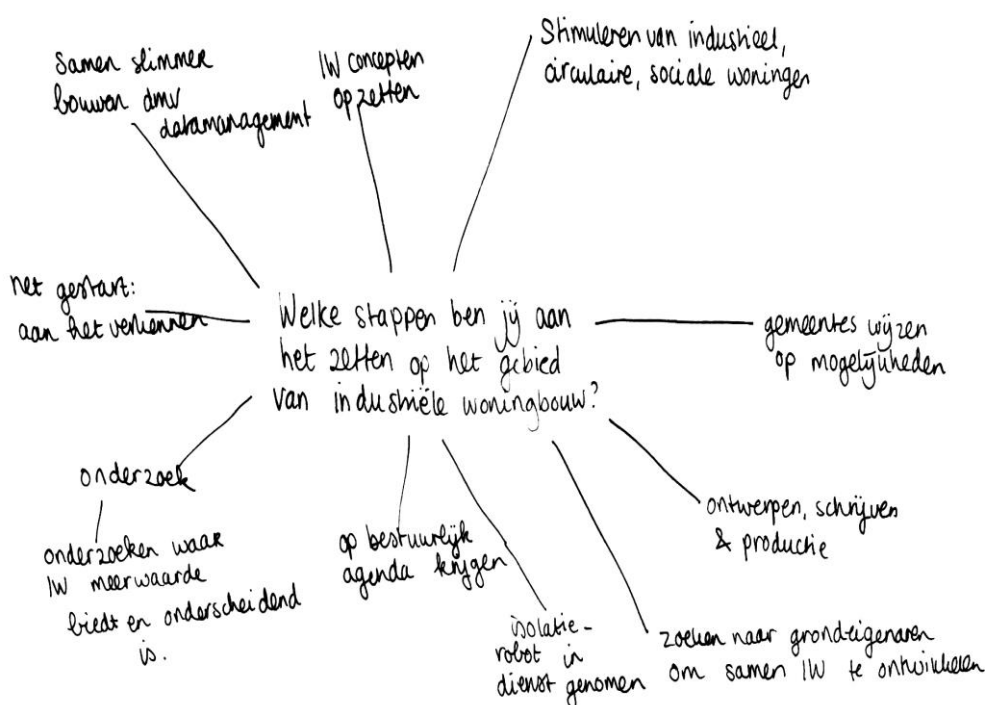 Samen slimmer
bouwen dmv
datamanagement
IW concepten
opzetten
Stimuleren van industrieel,
circulaire, sociale woningen
net gestart:
aan het verkennen
Welke stappen ben jij aan
het zetten op het gebied
van industriële woningbouw?
gemeentes wijzen
op mogelijkheden
onderzoek
onderzoeken waar
IW meerwaarde
biedt en onderscheidend
is.
op bestuurlijk
agenda krijgen
isolatie-
robot in
dienst genomen
zoeken naar grondeigenaren
om samen IW te ontwikkelen
ontwerpen, schrijven
& productie